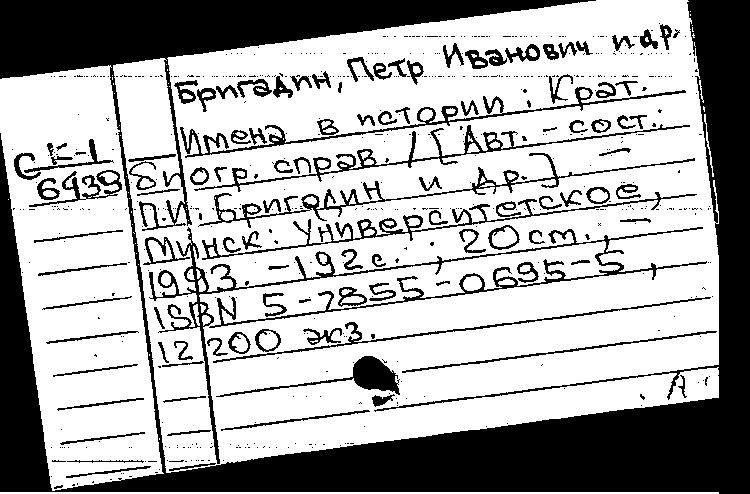 Бригадин, Петр Иванович и др.
Имена в истории : Крат.
С К-1
6439
биогр. справ. / [Авт. - сост.:
П.И. Бригадин и др.]. —
Минск: Университетское,
1993. -192 с. ; 20 cm., —
ISBN 5-7855-0695-5,
12 200 экз.
. А .